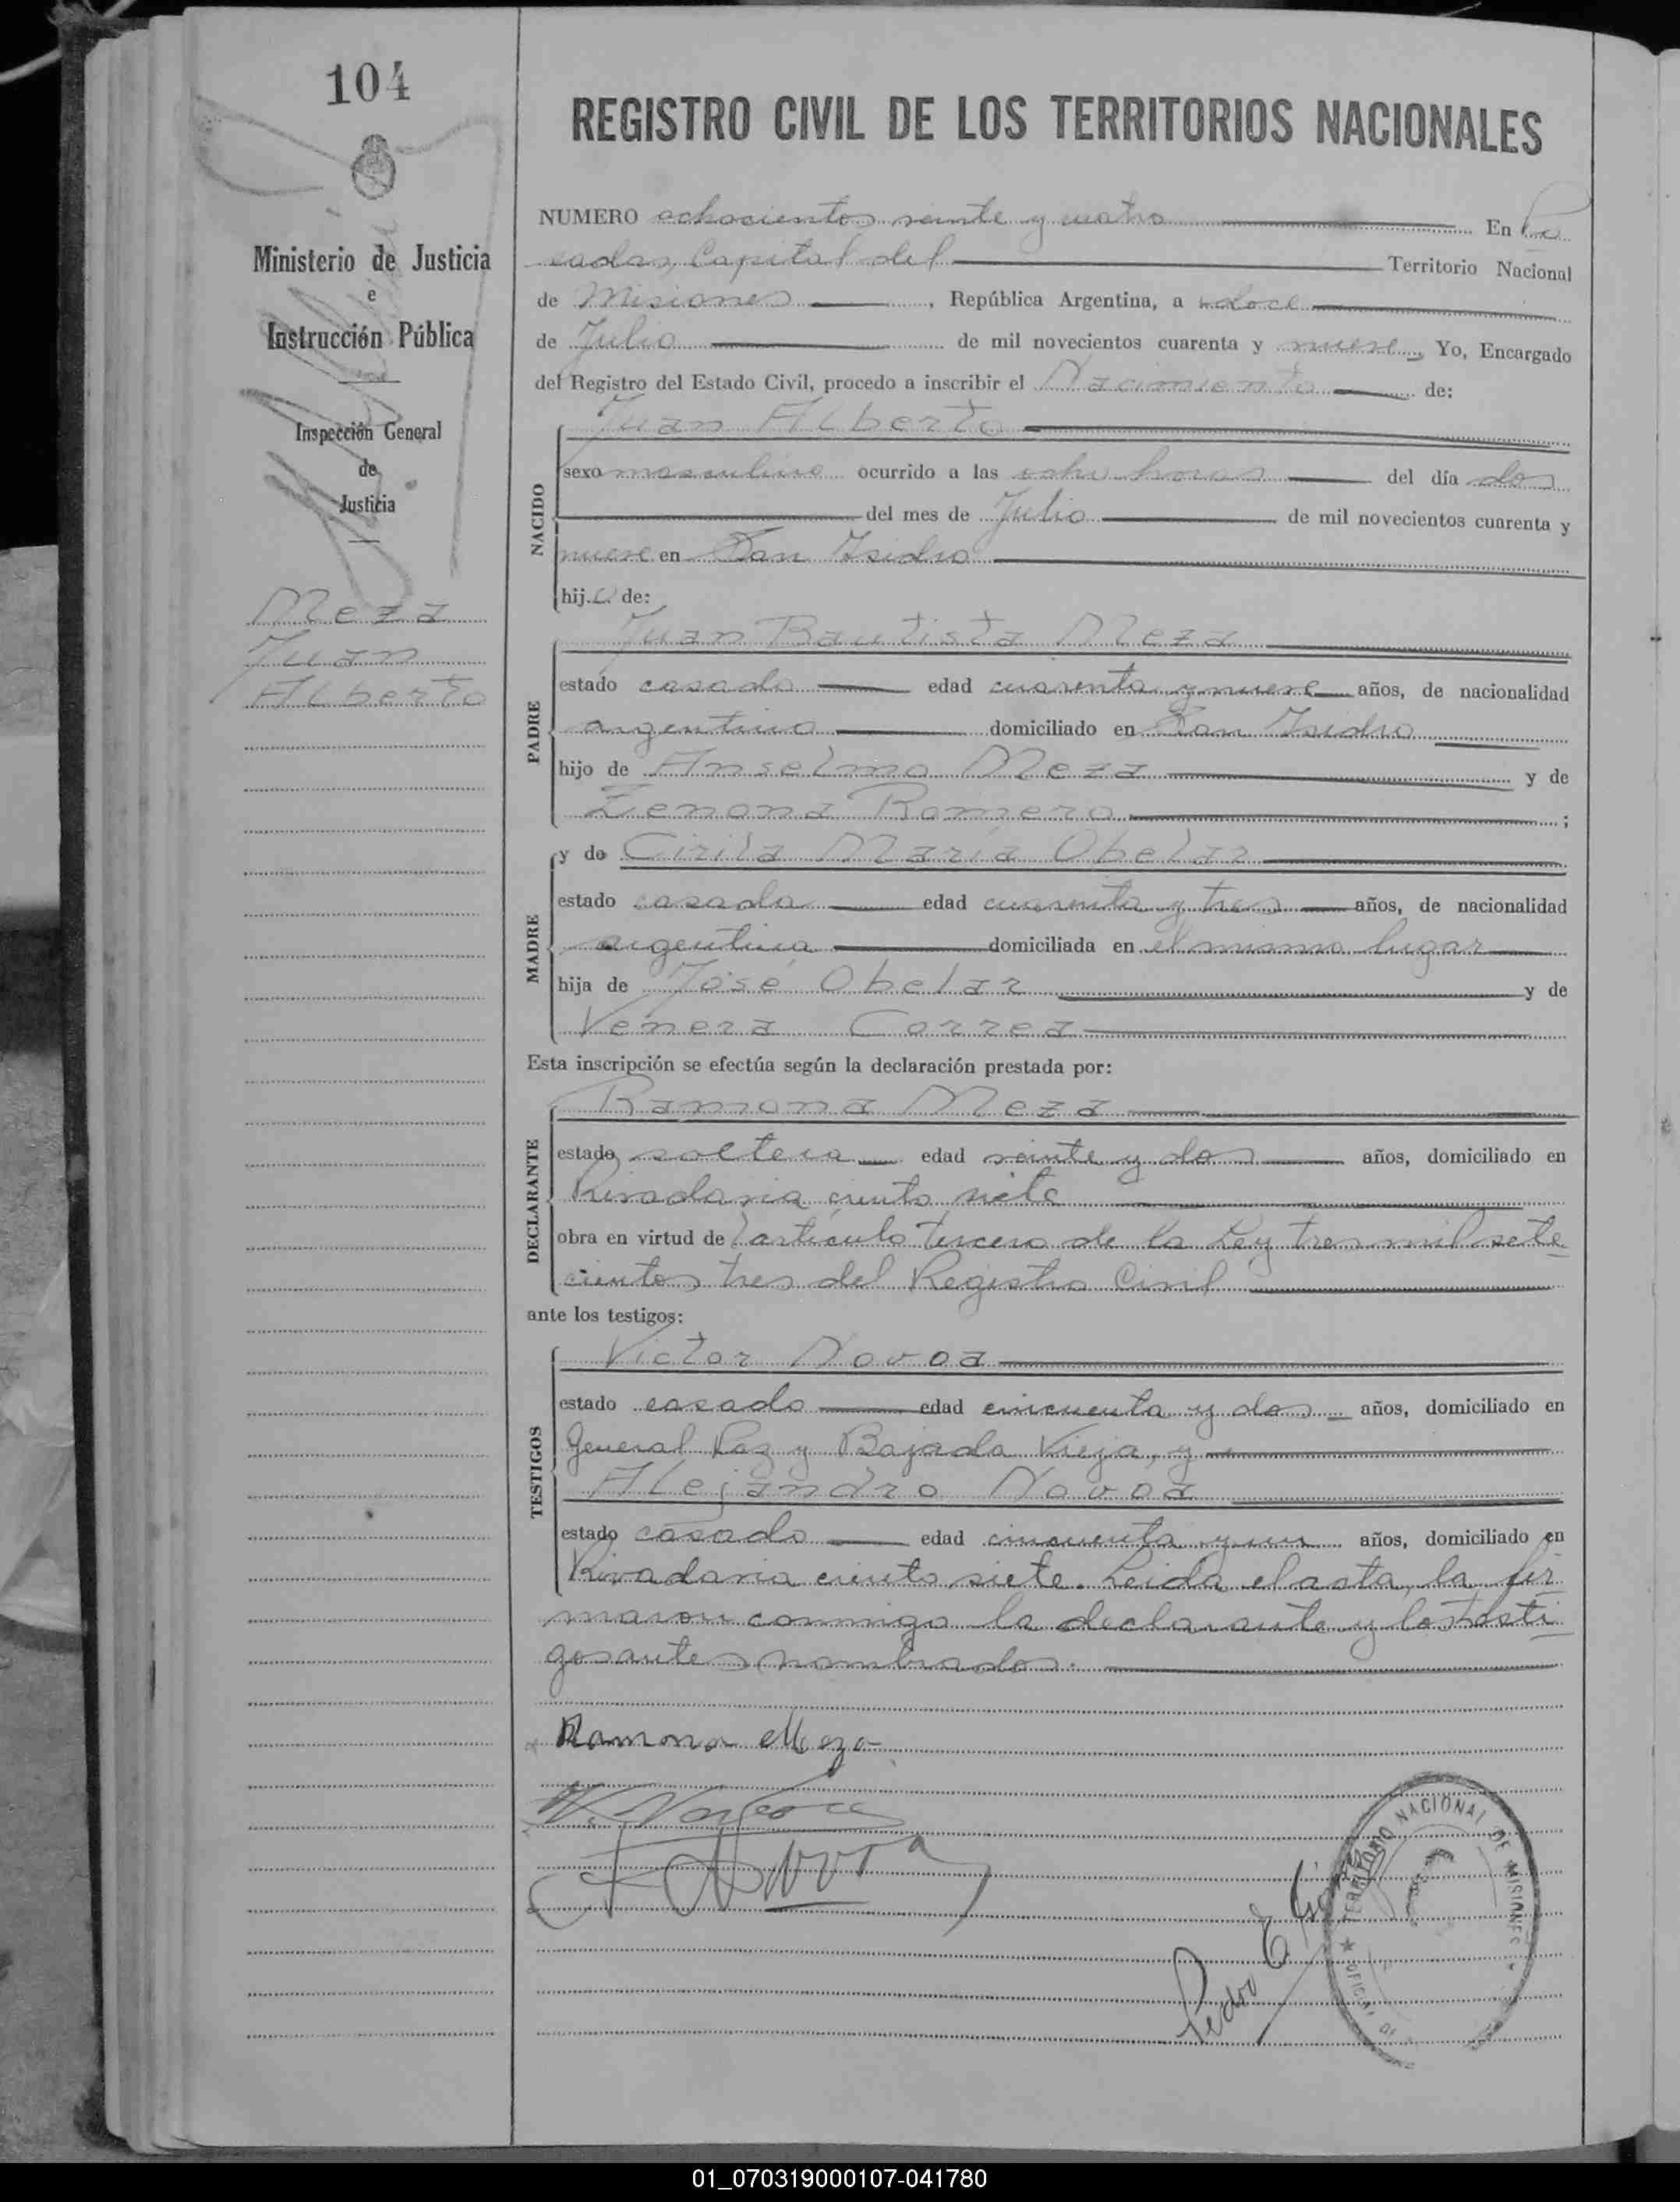 104
REGISTRO CIVIL DE LOS TERRITORIOS NACIONALES
Ministerio de Justicia
e
Instrucción Pública
Inspección General
de
Justicia
Meza
Juan
Alberto
NUMERO ochocientos veinte y cuatro En Po
sadas, Capital del Territorio Nacional
de Misiones, República Argentina, a doce
de Julio de mil novecientos cuarenta y nueve, Yo, Encargado
del Registro del Estado Civil, procedo a inscribir el Nacimiento de:
NACIDO
Juan Alberto
sexo masculino ocurrido a las ocho horas del día dos
del mes de Julio de mil novecientos cuarenta y
nueve en San Isidro
hijo de:
PADRE
Juan Bautista Meza
estado casado edad cuarenta y nueve años, de nacionalidad
argentina domiciliado en San Isidro
hijo de Anselmo Meza y de
Zenona Romero ;
MADRE
y de Cirila María Obelar
estado casada edad cuarenta y tres años, de nacionalidad
argentina domiciliada en el mismo lugar
hija de José Obelar y de
Venera Correa
Esta inscripción se efectúa según la declaración prestada por:
DECLARANTE
Ramona Meza
estado soltera edad veinte y dos años, domiciliado en
Rivadavia ciento siete
obra en virtud del artículo tercero de la Ley tres mil sete
cientos tres del Registro Civil
ante los testigos:
TESTIGOS
Victor Novoa
estado casado edad cincuenta y dos años, domiciliado en
General Paz y Bajada Vieja, y
Alejandro Novoa
estado casado edad cincuenta y un años, domiciliado en
Rivadavia ciento siete. Leida el acta, la fir
maron conmigo la declarante y los testi
gos antes nombrados.
Ramona Meza
Pedro E.
TERRITORIO NACIONAL DE MISIONES
01_070319000107-041780